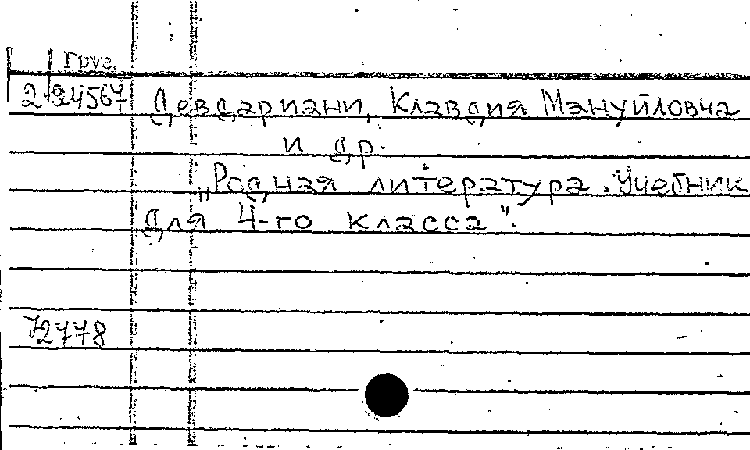 Груз.
2 94567 Девдариани, Клавдия Мануйловна
и др.
„Родная литература. Учебник
для 4-го класса".
72778